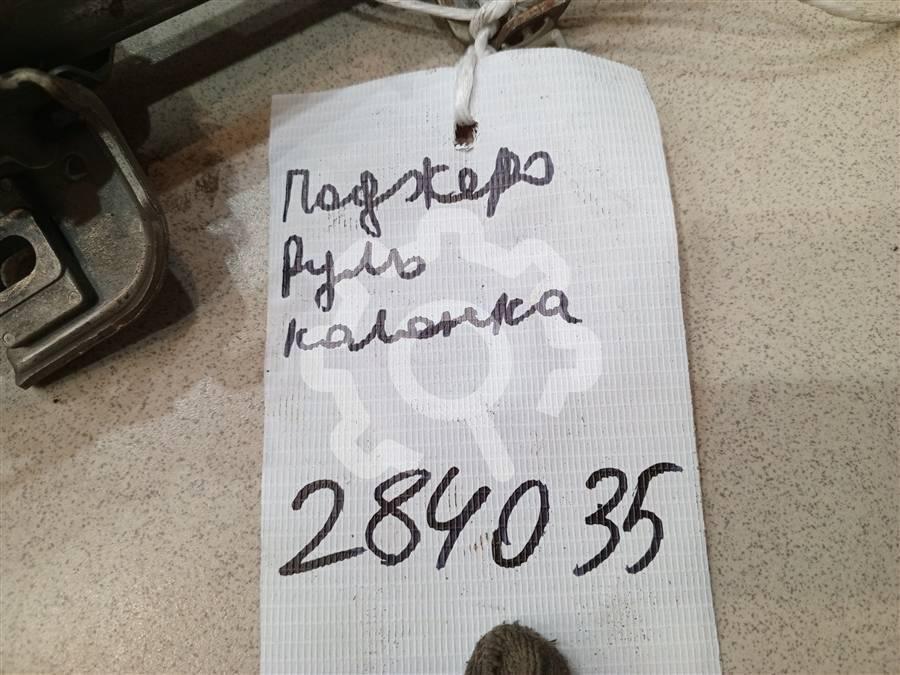 Паджеро
Руль
калонка
284035